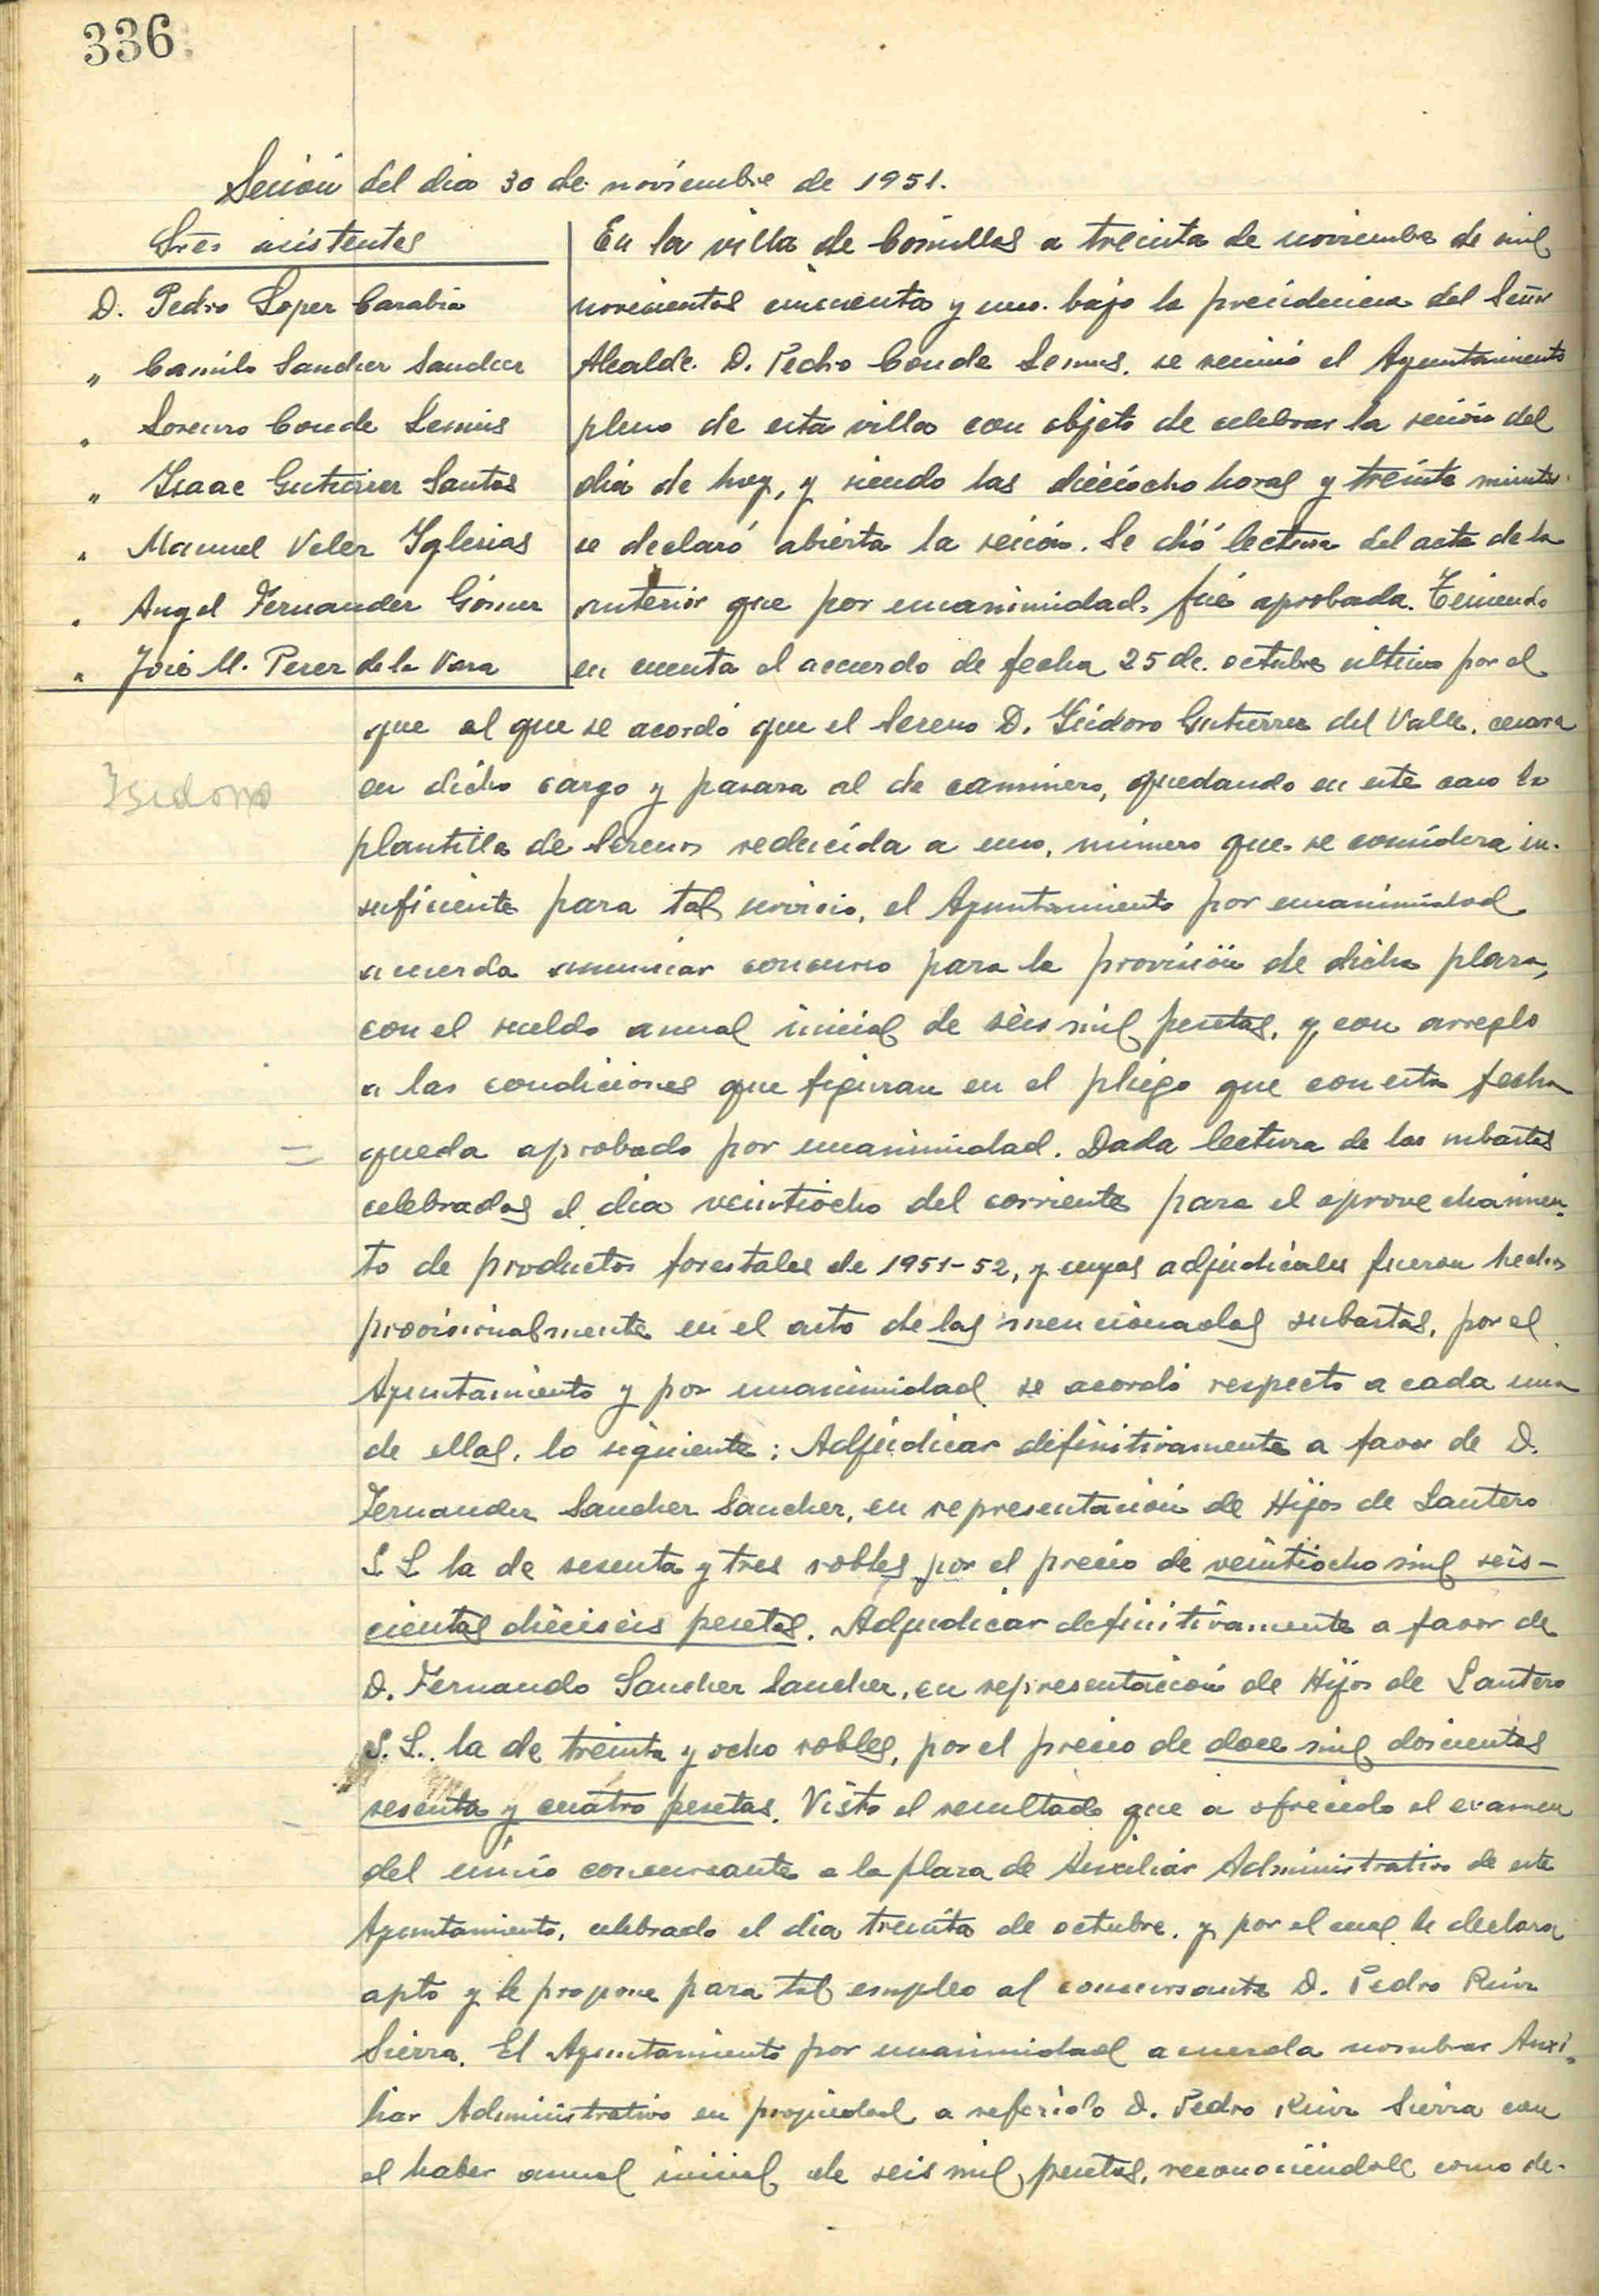 336
Sesión del dia 30 de noviembre de 1951.
Sres asistentes
D. Pedro Lopez Carabia
" Camilo Sanchez Sanchez
" Lorenzo Conde Lemus
" Isaac Gutierrez Santos
" Manuel Velez Yglesias
" Angel Fernandez Gómez
" José M. Perez de la Vara
En la villa de Comillas a treinta de noviembre de mil
novecientos cincuenta y uno. bajo la presidencia del Señor
Alcalde. D. Pedro Conde Lemus. se reunió el Ayuntamiento
pleno de esta villa con objeto de celebrar la sesión del
dia de hoy, y siendo las dieciocho horas y treinta minutos
se declaró abierta la sesión. Se dió lectura del acta de la
anterior que por unanimidad, fué aprobada. Teniendo
en cuenta el acuerdo de fecha 25 de octubre ultimo por el
que el que se acordó que el Sereno D. Ysidoro Gutierrez del Valle. cesara
Isidoro
en dicho cargo y pasara al de caminero, quedando en este caso la
plantilla de Serenos reducida a uno, número que se considera in-
suficiente para tal servicio, el Ayuntamiento por unanimidad
acuerda anunciar concurso para la provisión de dicha plaza,
con el sueldo anual inicial de seis mil pesetas, y con arreglo
a las condiciones que figuran en el pliego que con esta fecha
queda aprobado por unanimidad. Dada lectura de las subastas
celebradas el dia veintiocho del corriente para el aprovechamien-
to de productos forestales de 1951-52, y cuyas adjudicales fueron hechas
provisionalmente en el acto de las mencionadas subastas, por el
Ayuntamiento y por unanimidad se acordó respecto a cada una
de ellas, lo siguiente: Adjudicar definitivamente a favor de D.
Fernandez Sanchez Sanchez, en representación de Hijos de Lantero
S. L la de sesenta y tres robles por el precio de veintiocho mil seis-
cientas dieciseis pesetas. Adjudicar definitivamente a favor de
D. Fernando Sanchez Sanchez, en representación de Hijos de Lantero
S. L. la de treinta y ocho robles, por el precio de doce mil doscientas
sesenta y cuatro pesetas. Visto el resultado que a ofrecido el examen
del único concursante a la plaza de Auxiliar Administrativo de este
Ayuntamiento, celebrado el dia treinta de octubre, y por el cual le declara
apto y le propone para tal empleo al concursante D. Pedro Ruiz
Sierra. El Ayuntamiento por unanimidad acuerda nombrar Auxi-
liar Administrativo en propiedad a referido D. Pedro Ruiz Sierra con
el haber anual inicial de seis mil pesetas, reconociéndole como de-